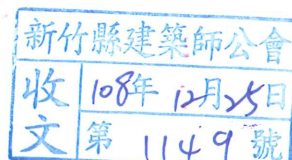 新竹縣建築師公會
收文
108年12月25日
第1149號